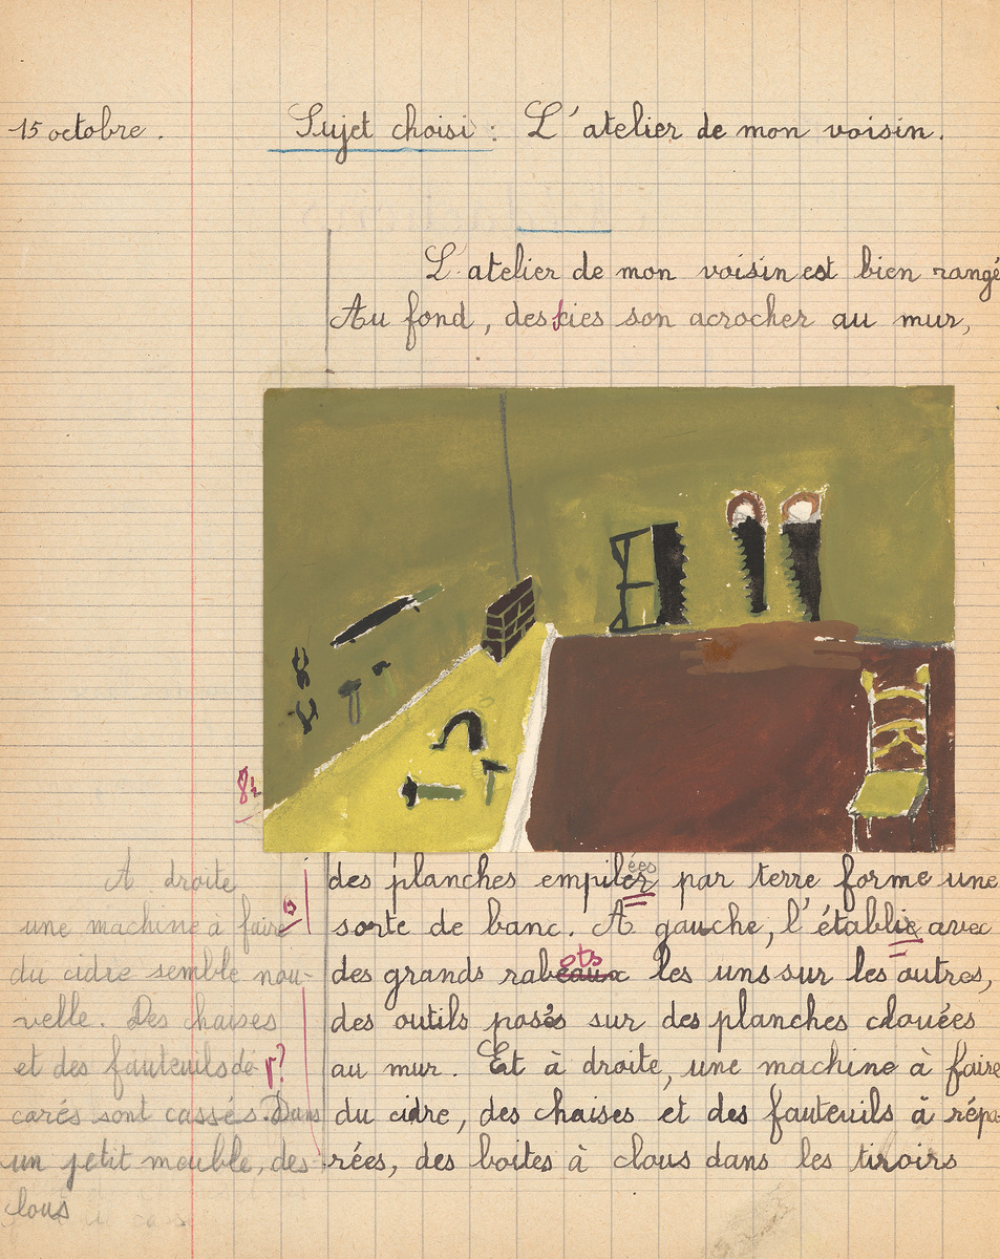 15 octobre. Sujet choisi : L'atelier de mon voisin.
L'atelier de mon voisin est bien rangé
Au fond, des scies son acrocher au mur,
8½
des planches empilées par terre forme une
sorte de banc. A gauche, l'établie avec
des grands rabeaux ots les uns sur les autres,
des outils posés sur des planches clouées
au mur. Et à droite, une machine à faire
du cidre, des chaises et des fauteuils à répa-
rées, des boites à clous dans les tiroirs
A droite
une machine à faire
du cidre semble nou-
velle. Des chaises
et des fauteuils dé r?
carés sont cassés. Dans
un petit meuble, des
lous